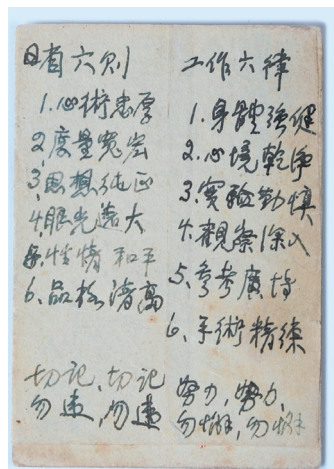 自省六则
1.心術忠厚
2.度量寬宏
3.思想純正
4.眼光遠大
5.性情和平
6.品格清高
切記,切記
勿違,勿違
工作六律
1.身體強健
2.心境乾淨
3.實驗勤慎
4.觀察深入
5.參考廣博
6.手術精練
努力,努力,
勿懈,勿懈